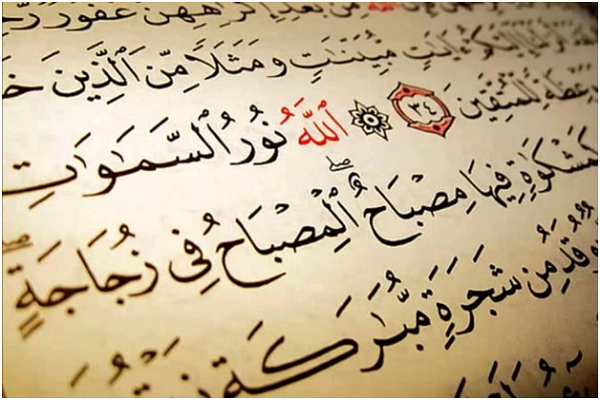 ٱللَّهَ مِنۢ بَعْدِ إِكْرَٰهِهِنَّ غَفُورٌ
ءَايَٰتٍ مُّبَيِّنَٰتٍ وَمَثَلًا مِّنَ ٱلَّذِينَ خَ
وْعِظَةً لِّلْمُتَّقِينَ ٣٤ ۞ ٱللَّهُ نُورُ ٱلسَّمَٰوَٰتِ
كَمِشْكَوٰةٍ فِيهَا مِصْبَاحٌ ۖ ٱلْمِصْبَاحُ فِى زُجَاجَةٍ ۖ
يُوقَدُ مِن شَجَرَةٍ مُّبَٰرَكَةٍ